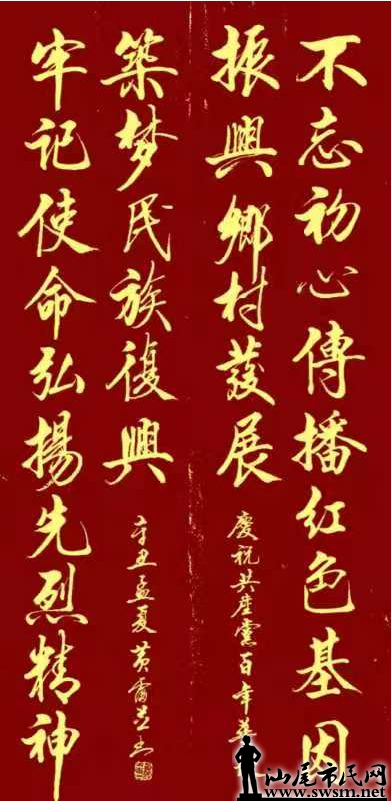 不忘初心傳播红色基因
振興鄉村發展
慶祝共産黨百年華
牢记使命弘揚先烈精神
築梦民族復興
辛丑孟夏黄
汕尾市民网
www.swsm.net